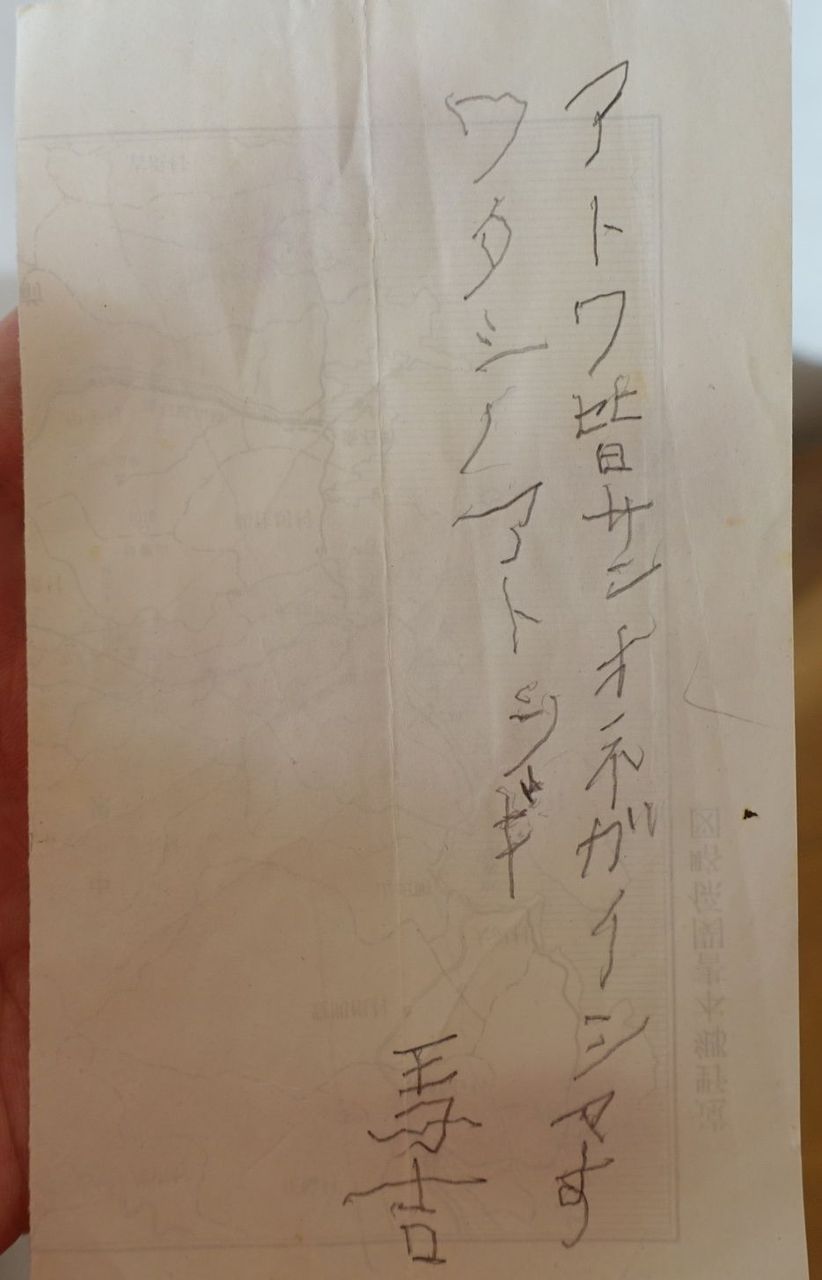 アトワ皆サンオネガイシマす
ワタシノアトツギ